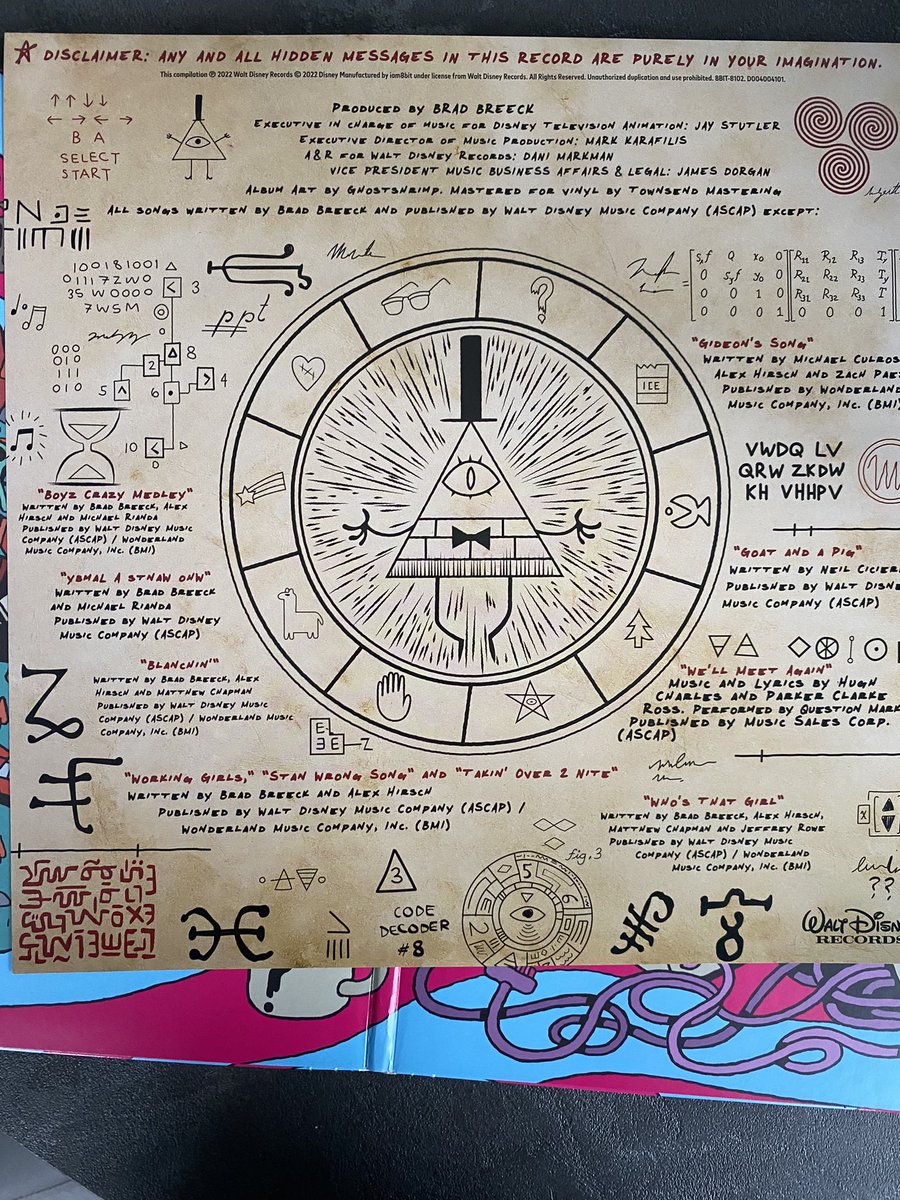 ☆ DISCLAIMER: ANY AND ALL HIDDEN MESSAGES IN THIS RECORD ARE PURELY IN YOUR IMAGINATION.
This compilation ℗ 2022 Walt Disney Records © 2022 Disney Manufactured by iam8bit under license from Walt Disney Records. All Rights Reserved. Unauthorized duplication and use prohibited. 8BIT-8102. D004004101.
↑↑↓↓
←→←→
B A
SELECT
START
PRODUCED BY BRAD BREECK
EXECUTIVE IN CHARGE OF MUSIC FOR DISNEY TELEVISION ANIMATION: JAY STUTLER
EXECUTIVE DIRECTOR OF MUSIC PRODUCTION: MARK KARAFILIS
A&R FOR WALT DISNEY RECORDS: DANI MARKMAN
VICE PRESIDENT MUSIC BUSINESS AFFAIRS & LEGAL: JAMES DORGAN
ALBUM ART BY GHOSTSHRIMP. MASTERED FOR VINYL BY TOWNSEND MASTERING
ALL SONGS WRITTEN BY BRAD BREECK AND PUBLISHED BY WALT DISNEY MUSIC COMPANY (ASCAP) EXCEPT:
100181001
01117ZW0
35 W0000
7WSM
3
ppt
000
010
111
010
8
2
5
6
4
10
?
ICE
"BOYZ CRAZY MEDLEY"
WRITTEN BY BRAD BREECK, ALEX
HIRSCH AND MICHAEL RIANDA
PUBLISHED BY WALT DISNEY MUSIC
COMPANY (ASCAP) / WONDERLAND
MUSIC COMPANY, INC. (BMI)
"YBMAL A STNAW OHW"
WRITTEN BY BRAD BREECK
AND MICHAEL RIANDA
PUBLISHED BY WALT DISNEY
MUSIC COMPANY (ASCAP)
"BLANCHIN'"
WRITTEN BY BRAD BREECK, ALEX
HIRSCH AND MATTHEW CHAPMAN
PUBLISHED BY WALT DISNEY MUSIC
COMPANY (ASCAP) / WONDERLAND MUSIC
COMPANY, INC. (BMI)
"WORKING GIRLS," "STAN WRONG SONG" AND "TAKIN' OVER 2 NITE"
WRITTEN BY BRAD BREECK AND ALEX HIRSCH
PUBLISHED BY WALT DISNEY MUSIC COMPANY (ASCAP) /
WONDERLAND MUSIC COMPANY, INC. (BMI)
"GIDEON'S SONG"
WRITTEN BY MICHAEL
ALEX HIRSCH AND ZACH
PUBLISHED BY WONDERLAND
MUSIC COMPANY, INC. (BMI)
VWDQ LV
QRW ZKDW
KH VHHPV
"GOAT AND A PIG"
WRITTEN BY NEIL
PUBLISHED BY WALT
MUSIC COMPANY (ASCAP)
"WE'LL MEET AGAIN"
MUSIC AND LYRICS BY HUGH
CHARLES AND PARKER CLARKE
ROSS. PERFORMED BY QUESTION MARK
PUBLISHED BY MUSIC SALES CORP.
(ASCAP)
"WHO'S THAT GIRL"
WRITTEN BY BRAD BREECK, ALEX HIRSCH,
MATTHEW CHAPMAN AND JEFFREY ROWE
PUBLISHED BY WALT DISNEY MUSIC
COMPANY (ASCAP) / WONDERLAND
MUSIC COMPANY, INC. (BMI)
3
CODE
DECODER
#8
fig.3
5
??
WALT
RECORDS
?